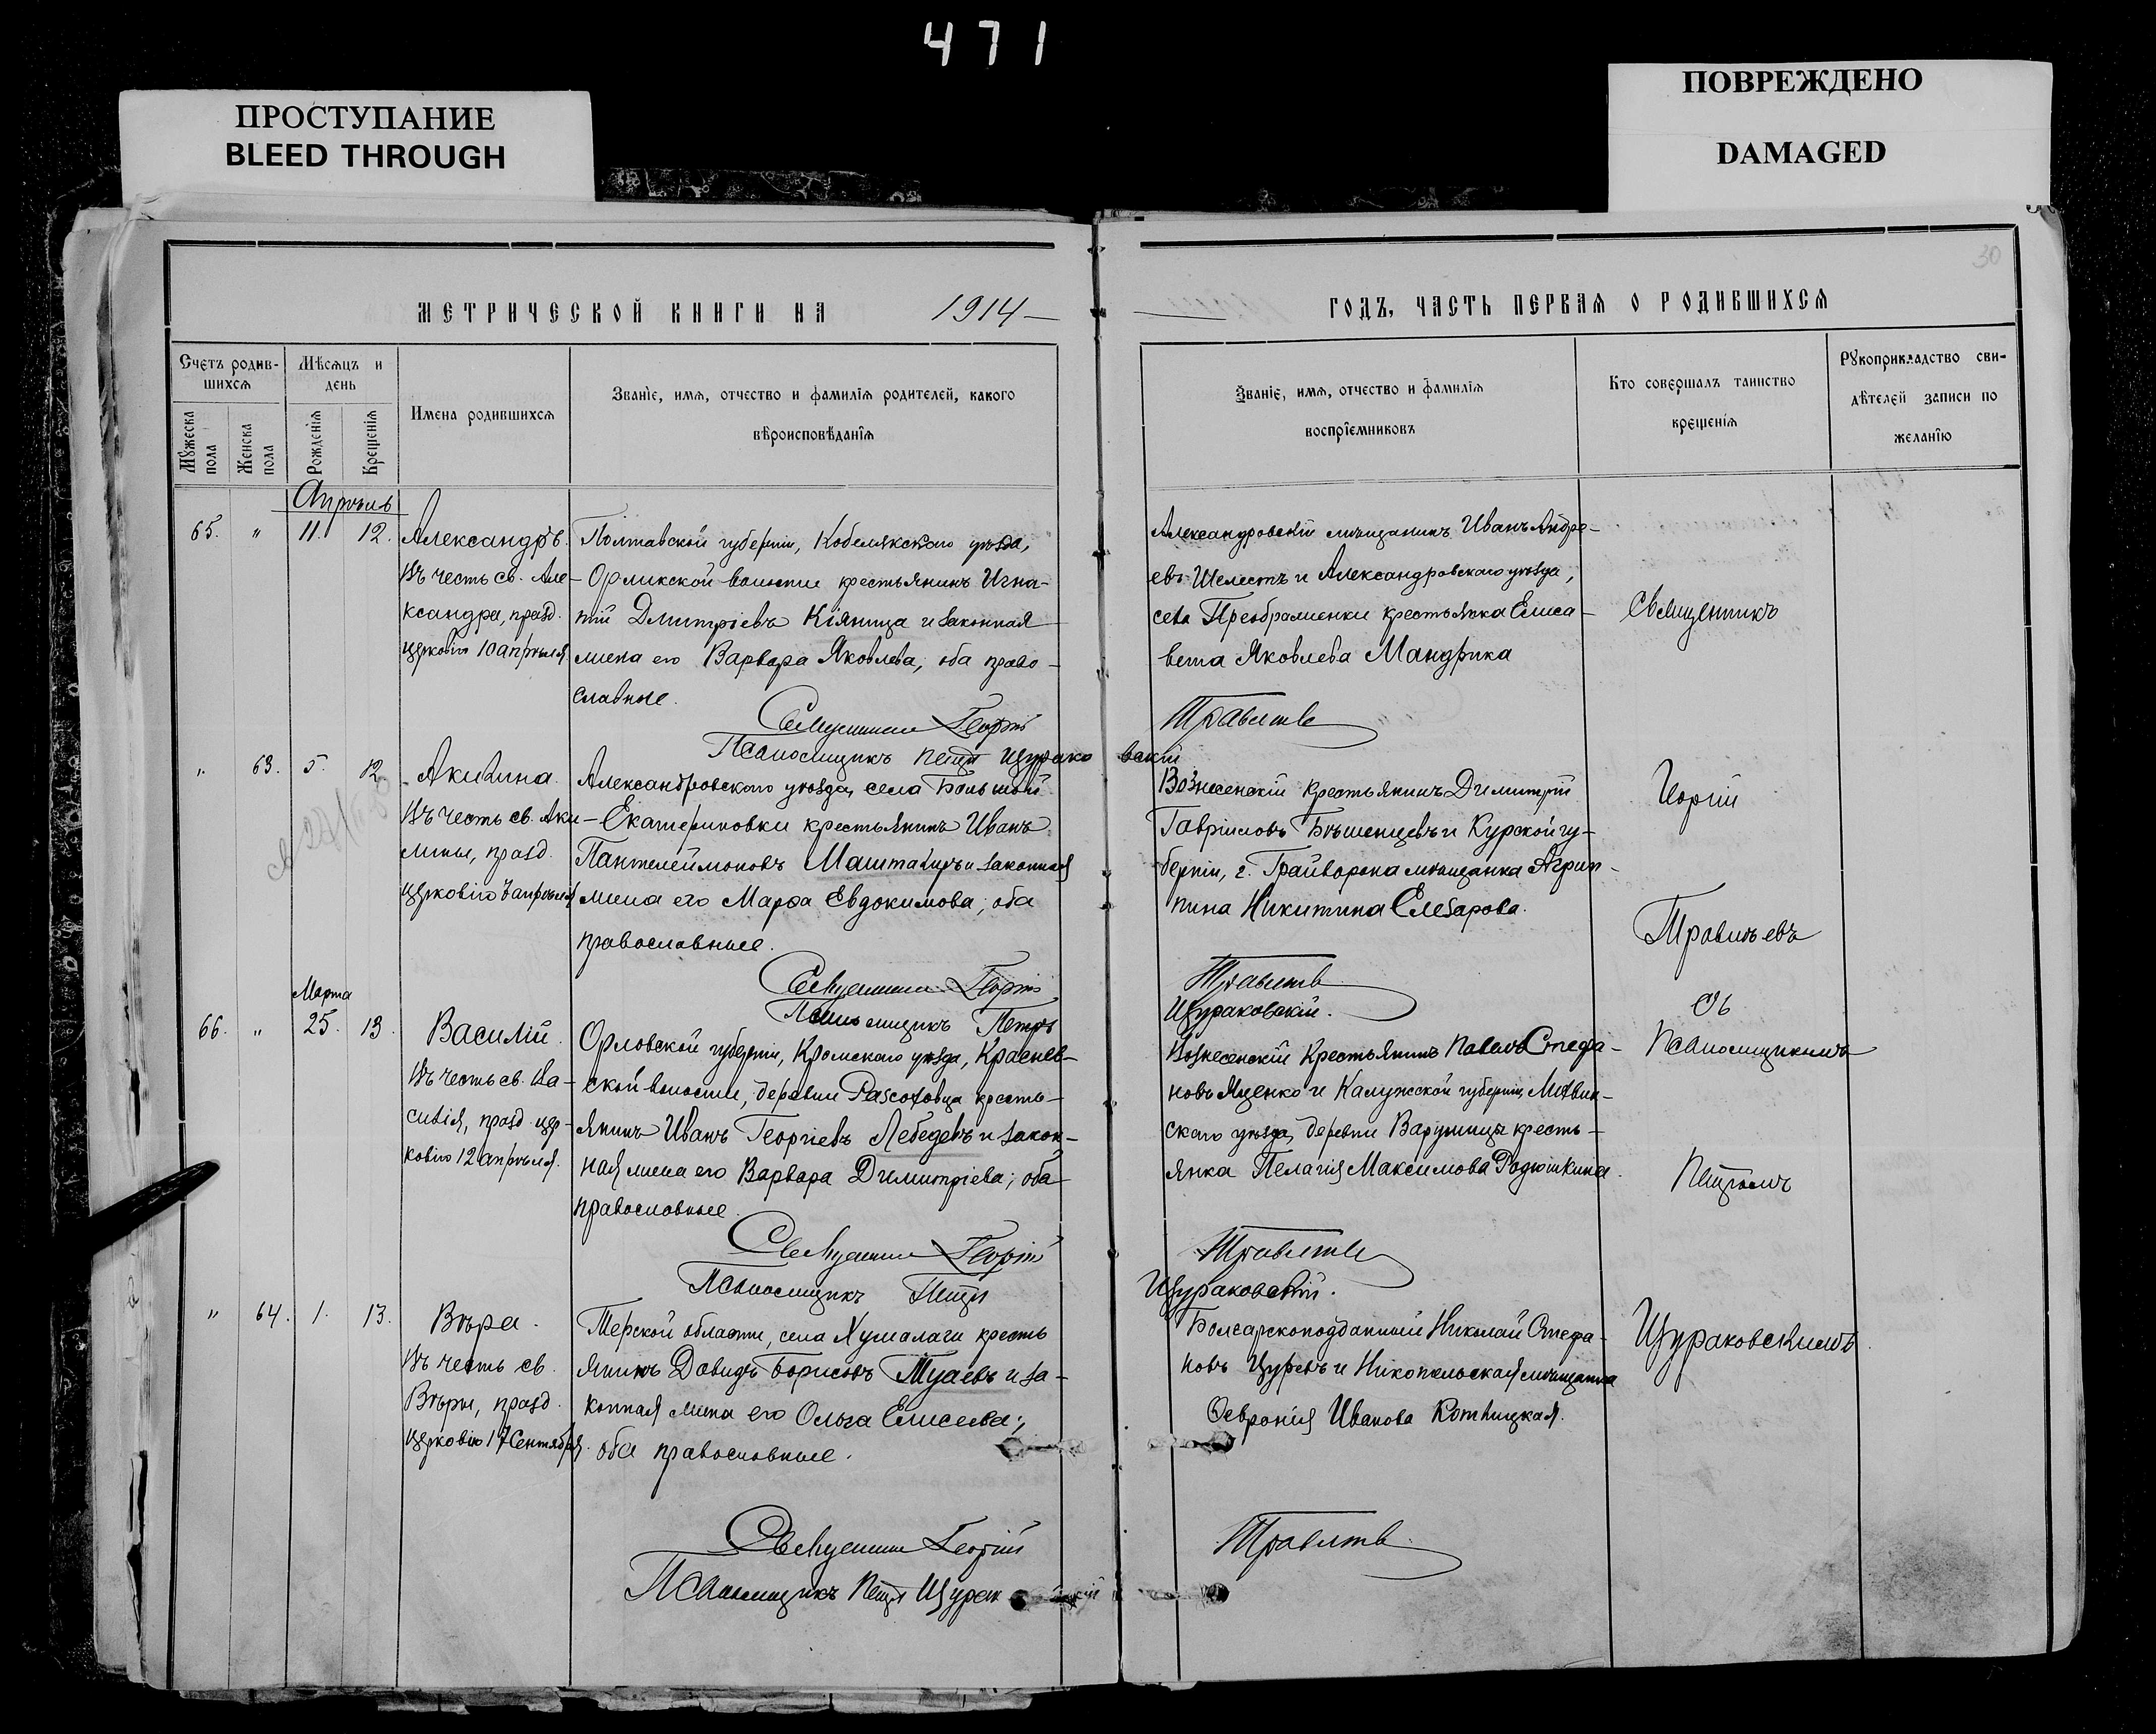 471
ПРОСТУПАНИЕ
BLEED THROUGH
ПОВРЕЖДЕНО
DAMAGED
30
МЕТРИЧЕСКОЙ КНИГИ НА 1914
ГОДЪ, ЧАСТЬ ПЕРВАЯ О РОДИВШИХСЯ
Счетъ родив-
шихся
Мужеска
пола
Женска
пола
Мѣсяцъ и
день
Рожденія
Крещенія
Имена родившихся
Званіе, имя, отчество и фамилія родителей, какого
вѣроисповѣданія
Званіе, имя, отчество и фамилія
воспріемниковъ
Кто совершалъ таинство
крещенія
Рукоприкладство сви-
дѣтелей записи по
желанію
Апрѣль
65. " 11. 12.
Александръ.
Въ честь св. Але-
ксандра, празд.
церковію 10 апрѣля
Полтавской губерніи, Кобелякскаго уѣзда,
Орликской волости крестьянинъ Игна-
тій Димитріевъ Кіяница и законная
жена его Варвара Яковлева, оба право-
славные.
Священникъ Георгій
Псаломщикъ Петръ Щурако
Александровскій мѣщанинъ Иванъ Андре-
евъ Шелестъ и Александровскаго уѣзда,
села Преображенки крестьянка Елиса-
вета Яковлева Мандрика
вскій
" 63. 5. 12.
Акилина.
Въ честь св. Аки-
лины, празд.
церковію 7 апрѣля
Александровскаго уѣзда, села Большой
Екатериновки крестьянинъ Иванъ
Пантелеймоновъ Машталиръ и законная
жена его Марѳа Евдокимова; оба
православные.
Священникъ Георгій
Псаломщикъ Петръ
Вознесенскій крестьянинъ Димитрій
Гавріиловъ Бѣшенцевъ и Курской гу-
берніи, г. Грайворона мѣщанка Агрип-
пина Никитина Елезарова.
Щураковскій.
Марта
66. " 25. 13.
Василій
Въ честь св. Ва-
силія, празд. цер-
ковію 12 апрѣля.
Орловской губерніи, Кромскаго уѣзда,
ской волости, деревни кресть-
янинъ Иванъ Георгіевъ Лебедевъ и закон-
ная жена его Варвара Димитріева; оба
православные.
Священникъ Георгій
Псаломщикъ Петръ
Вознесенскій крестьянинъ Павелъ Стефа-
новъ Яценко и Калужской губерніи,
скаго уѣзда, деревни кресть-
янка Пелагія Максимова Родюшкина.
Щураковскій.
" 64. 1. 13.
Вѣра.
Въ честь св.
Вѣры, празд.
церковію 17 Сентября.
Терской области, села Хумалаги кресть
янинъ Давидъ Борисовъ Туаевъ и за-
конная жена его Ольга Елисеева;
оба православные.
Священникъ Георгій
Псаломщикъ Петръ Щурак
Болгарскоподданный Николай Стефа-
новъ Цуревъ и Никопольская мѣщанка
Ѳевронія Иванова Котлицкая.
Священникъ
Георгій
съ
Псаломщикомъ
Петромъ
Щураковскимъ.